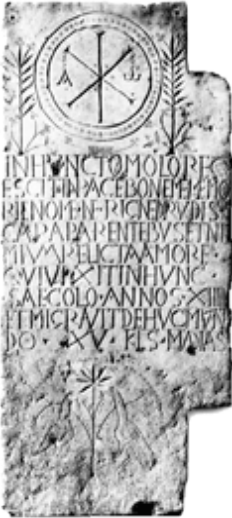 A ω
IN HVNC TOMOLO REQ
ESCIT IN PACE BONE MEMO
RIE NOM·N·RIGNEDRVDIS·
CARA PARENTEBVS ET NI
MIVM RELICTA AMORE·
QVI VIXIT IN HVNC·
SAECOLO·ANNOS·
ET MIGRAVIT DE HVC MVN
DO·XV·KLS·MAIAS